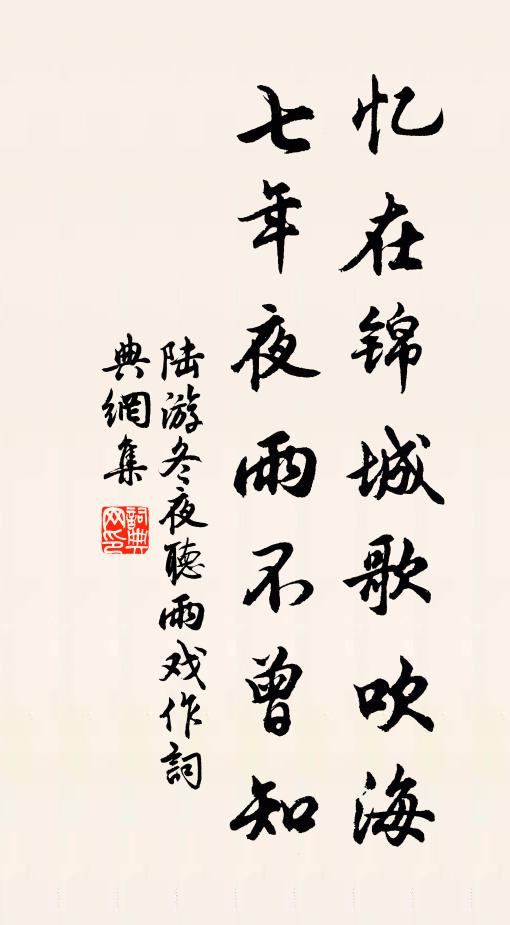 忆在锦城歌吹海
七年夜雨不曾知
陆游冬夜聽雨戏作詞
典網集
詞典
网印